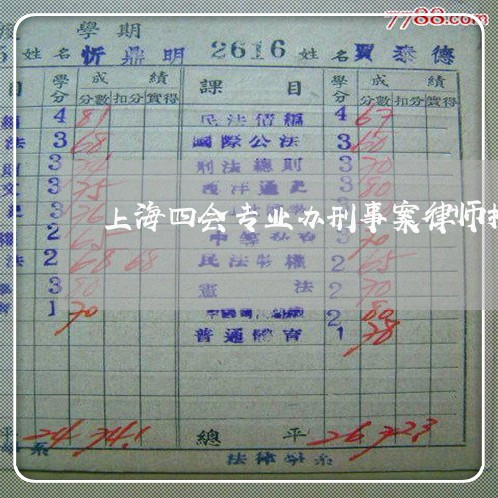 7788.com
學期
姓名 忻鼎明 2616 姓名 賈泰德
目 學分 成績 課目 學分 成績
分數 扣分 實得 分數 扣分 實得
4 81 民法債編 4 67
法 3 68 國際公法 3 60
3 刑法總則 3 70
3 75 西洋通史 3 80
3 76 3
上海四会专业办刑事案律师
權 2 65 3 70
法 2 68 68 民法物權 2 65
3 80 憲法 2 70
1 70 2 80
普通體育 1 78
平 24 74.1 總平 26 72.3
系 法律學系